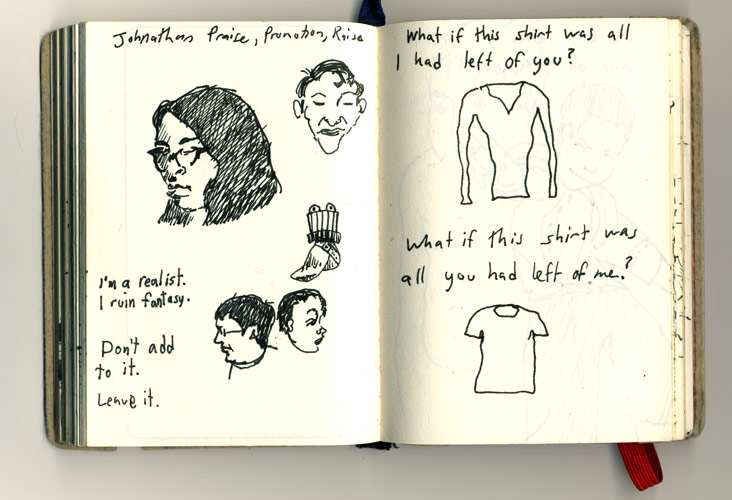 Johnathan Praise, Promotion, Raise
I'm a realist.
I ruin fantasy.
Don't add
to it.
Leave it.
What if this shirt was all
I had left of you?
What if this shirt was
all you had left of me?